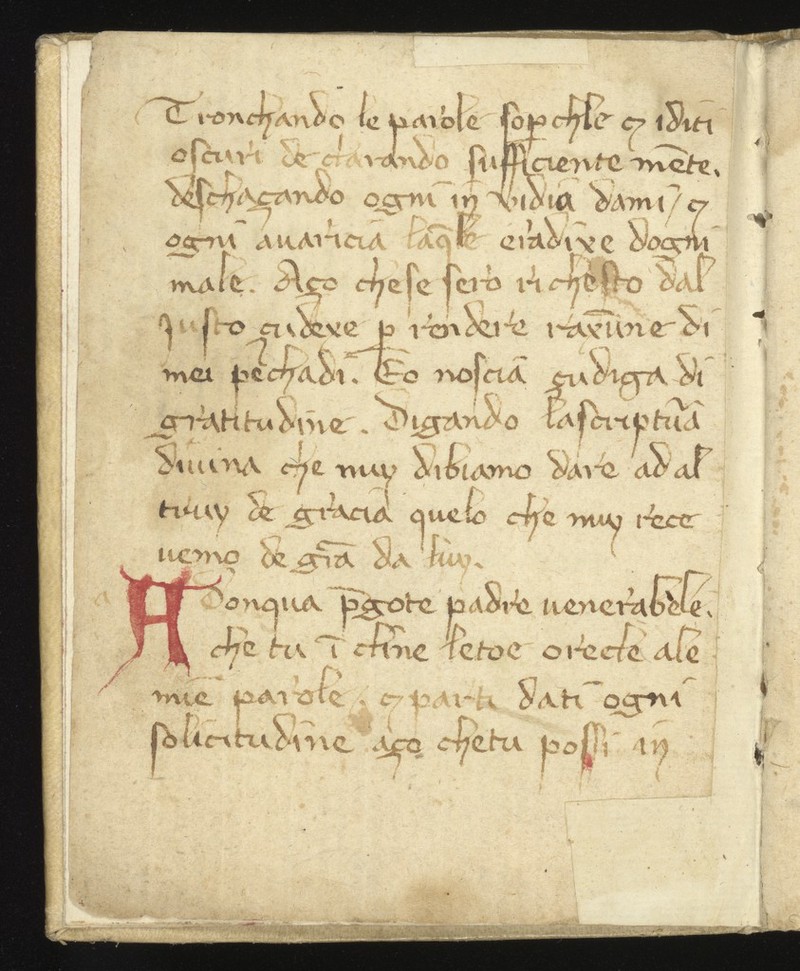 Tronchando le parole soꝑchle ⁊ iditi
oscuri de clarando sufficiente mēte.
deschaçando ogni in vidia dami / ⁊
ogni auaricia laq̄le eradixe dogni
male. Aço chese sero richesto dal
Justo çudexe ꝑ rendere raxūne di
mei pechadi. Eo noscia çudiga di
gratitudine. Digando lascriptūa
diuina che nuy dibiamo dare ad al
truy de gracia quelo che nuy rece
uemo de gr̄a da luy.
A Donqua p̄gote padre venerabele.
che tu ī clīne letoe orecle ale
mie parole. ⁊ parti dati ogni
solicitudine aço chetu possi in